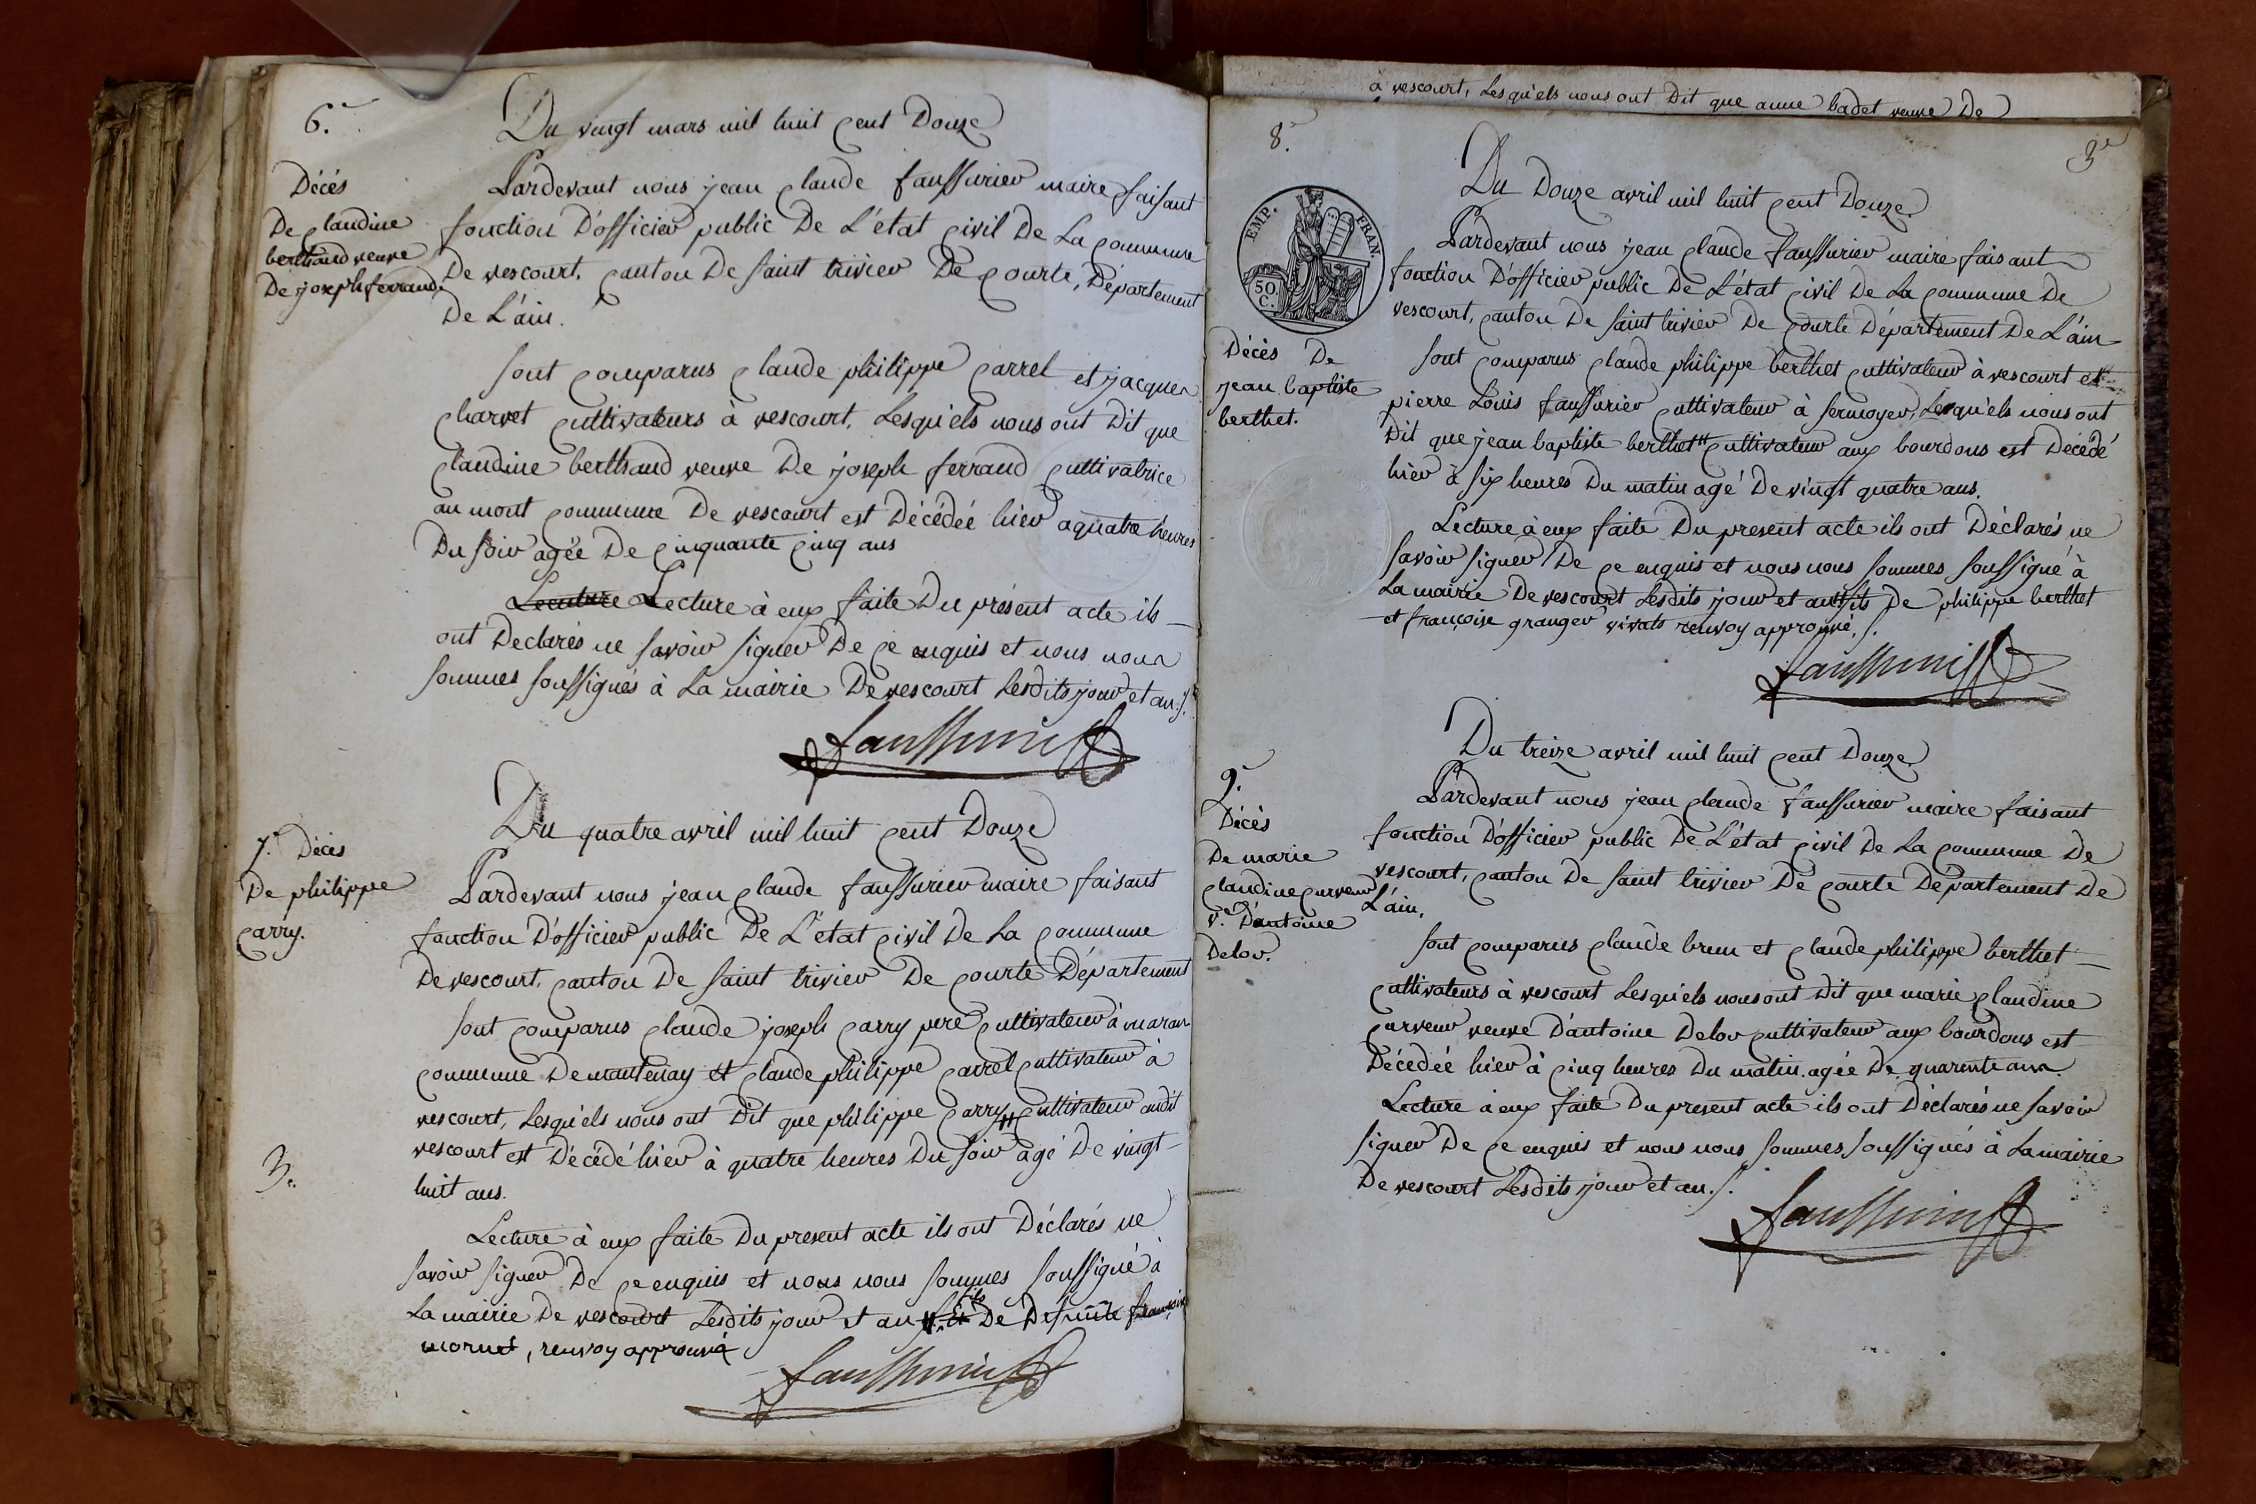 6.e
Du vingt mars mil huit cent Douze
Décés
De claudine
berthaud veuve
De joseph ferraud.
Pardevant nous jean claude faussurier maire faisant
fonction D'officier public De L'état civil De La commune
De vescourt, canton De saint trivier De courte, Département
De L'ain.
sont comparus claude philippe carrel et jacques
charvet cultivateurs à vescourt, Lesqu'els nous ont Dit que
claudine berthaud veuve De joseph ferraud cultivatrice
au mont commune De vescourt est Décédée hier a quatre heures
Du soir agée De cinquante cinq ans
Lecuture Lecture à eux faite Du présent acte ils
ont Declarés ne savoir signer De ce enquis et nous nous
sommes soussignés à La mairie De vescourt Lesdits jour et an./.
faussurier
7.e Décès
De philippe
carry.
Du quatre avril mil huit cent Douze
Pardevant nous jean claude faussurier maire faisant
fonction D'officier public De L'etat civil De La commune
De vescourt, canton De saint trivier De courte Département
sont comparus claude joseph carry pere cultivateur à
commune De mantenay et claude philippe carrel cultivateur à
vescourt, Lesqu'els nous ont Dit que philippe carry cultivateur audit
vescourt est Décédé hier à quatre heures Du soir agé De vingt
huit ans.
3.
Lecture à eux faite Du present acte ils ont Déclarés ne
savoir signer De ce enquis et nous nous sommes soussigné à
La mairie De vescourt Lesdits jour et an fils De Defunte francoise
mornet, renvoy approuvé
faussurier
à vescourt, Lesqu'els nous ont Dit que anne badet veuve De
8.e
3e
EMP. FRAN.
50
C.
Du Douze avril mil huit cent Douze.
Pardevant nous jean claude faussurier maire faisant
fonction D'officier public De L'état civil De La commune De
vescourt, canton De saint trivier De courte Département De L'ain
Décès De
jean baptiste
berthet.
sont comparus claude philippe berthet cultivateur à vescourt et
pierre Louis faussurier cultivateur à sermoyer, Lesqu'els nous ont
Dit que jean baptiste berthet cultivateur aux bourdons est Décédé
hier à six heures Du matin agé De vingt quatre ans.
Lecture à eux faite Du present acte ils ont Déclarés ne
savoir signer De ce enquis et nous nous sommes soussigné à
La mairie De vescourt Lesdits jour et an fils De philippe berthet
et françoise granger vivats renvoy approuvé. /.
faussurier
9.e
Décès
De marie
claudine curveur
v.e D'antoine
Delor.
Du treize avril mil huit cent Douze
Pardevant nous jean claude faussurier maire faisant
fonction D'officier public De L'état civil De La commune De
vescourt, canton De saint trivier De courte Département De
L'ain,
sont comparus claude brun et claude philippe berthet
cultivateurs à vescourt Lesqu'els nous ont Dit que marie claudine
curveur veuve D'antoine Delor cultivateur aux bourdons est
Décédée hier à cinq heures Du matin agée De quarente ans.
Lecture à eux faite Du present acte ils ont Déclarés ne savoir
signer De ce enquis et nous nous sommes soussignés à La mairie
De vescourt Lesdits jour et an./.
faussurier